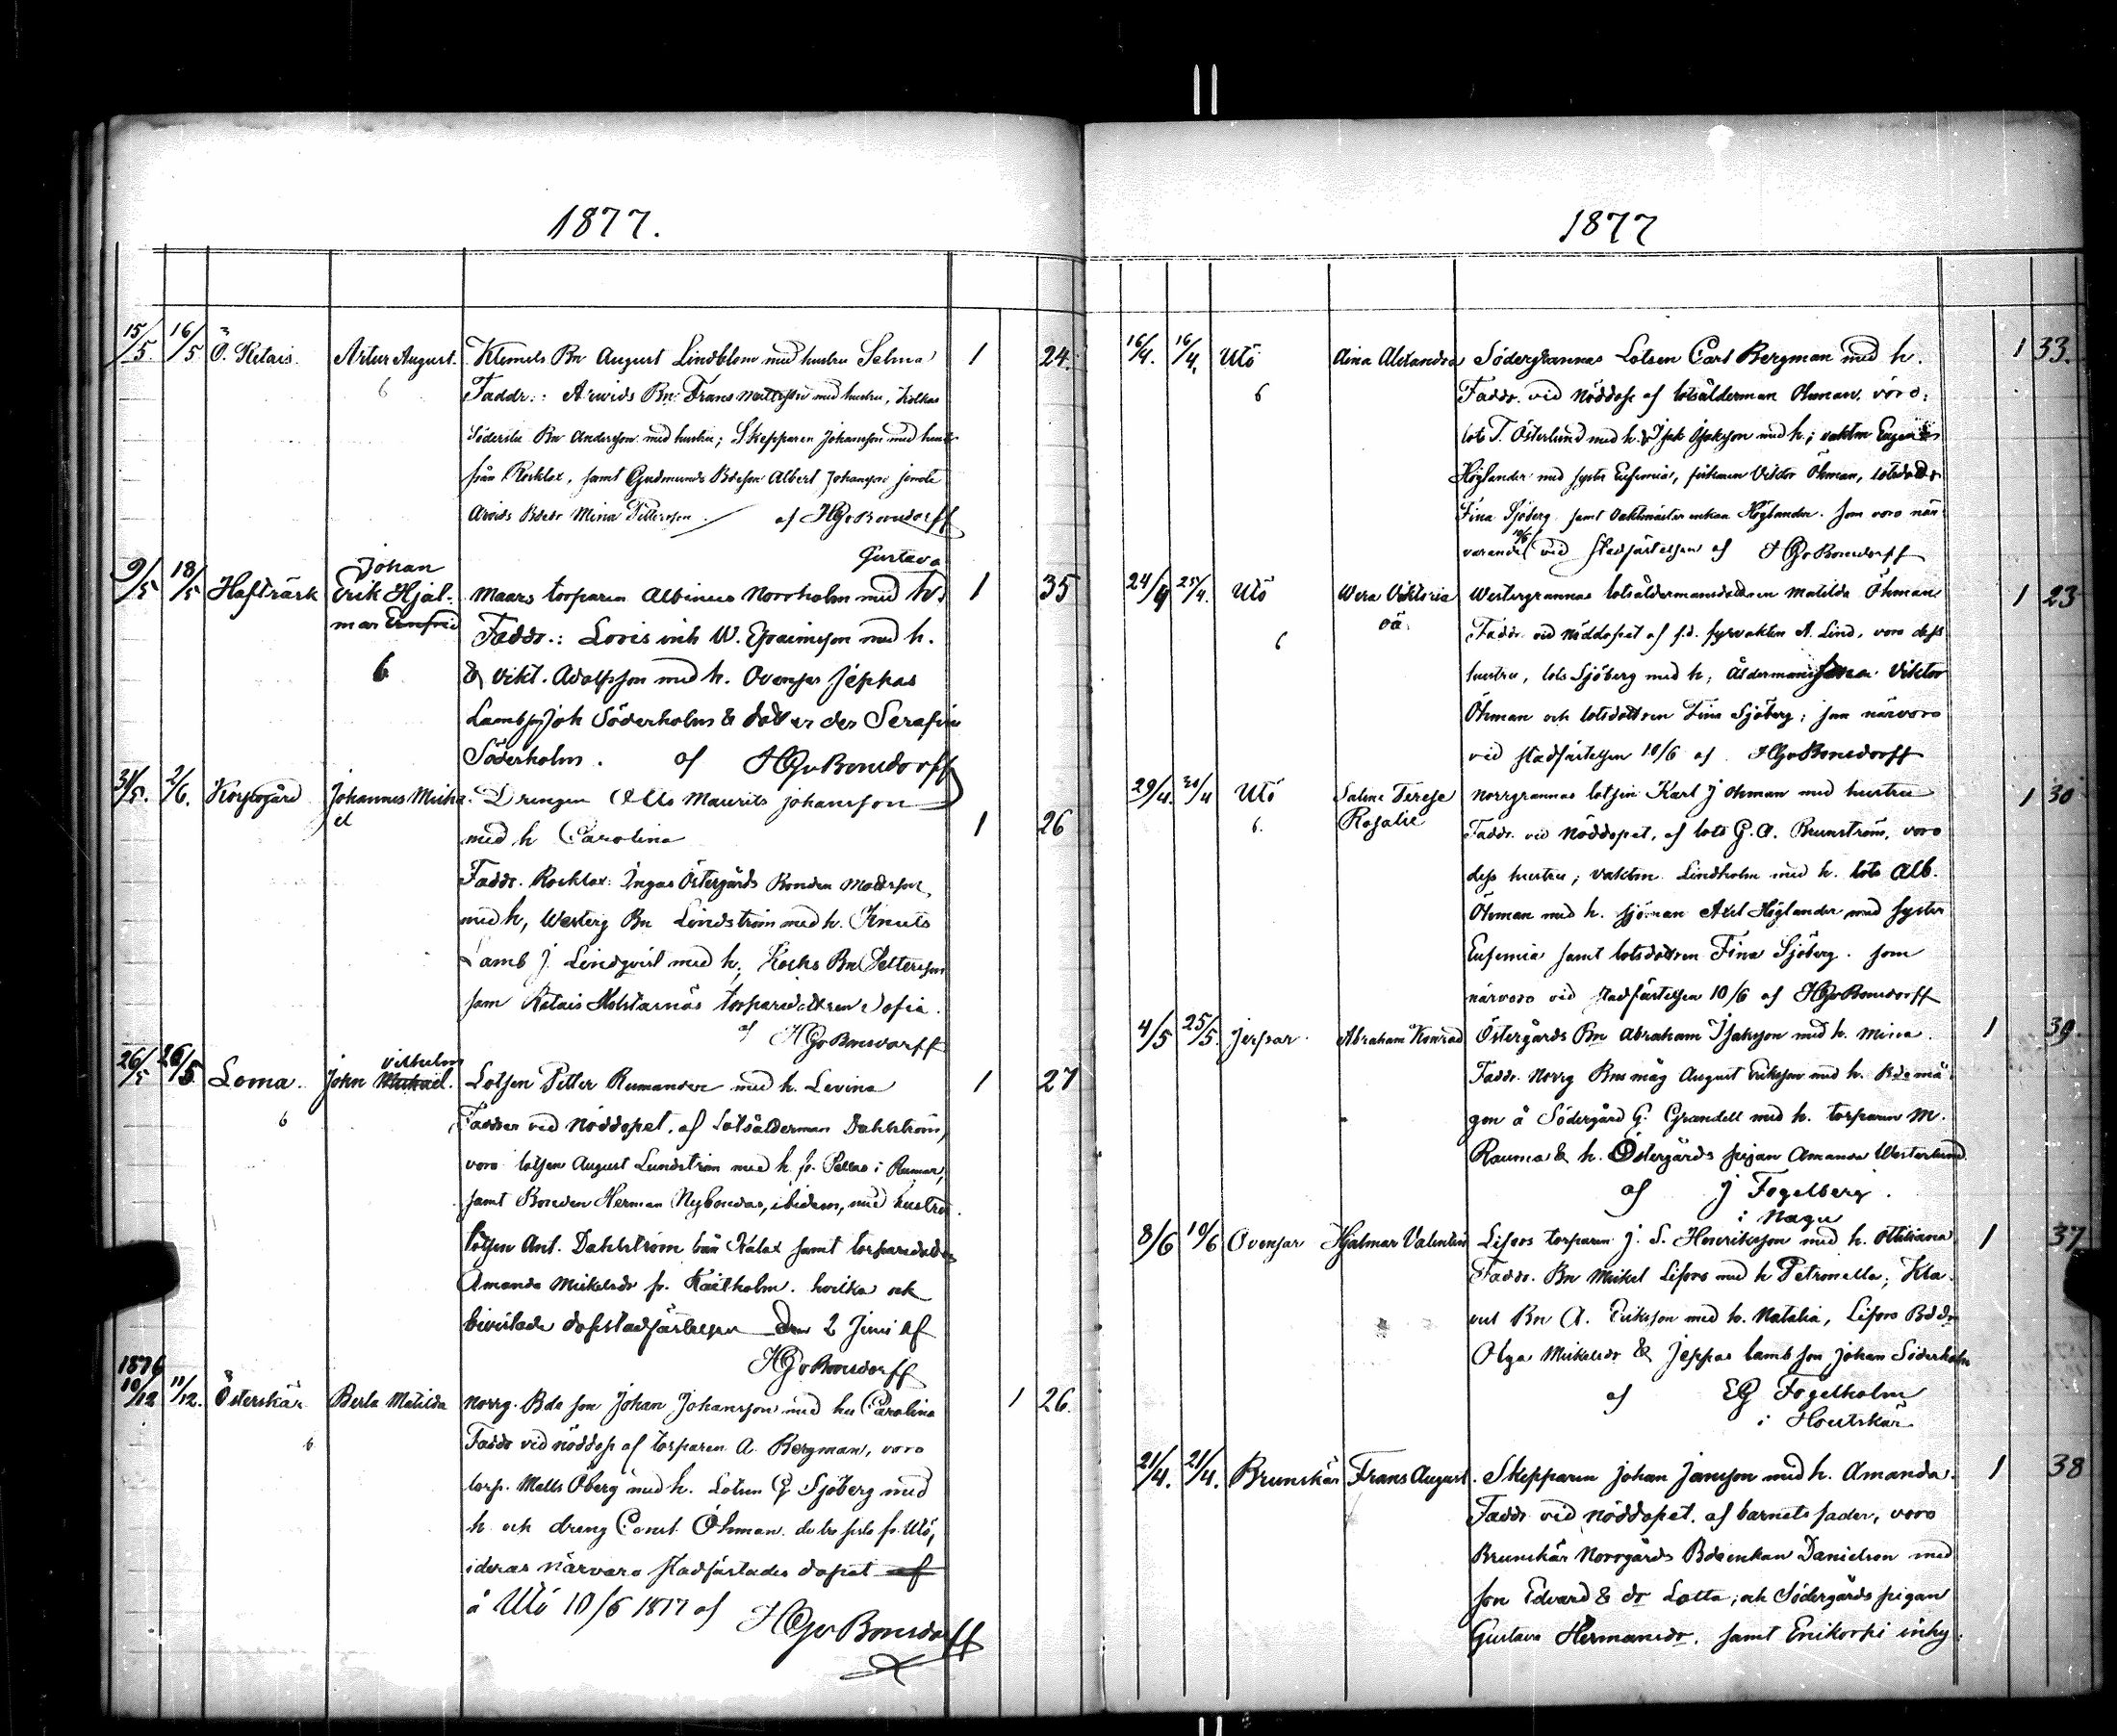 1877.
15/5 16/5 Ö. Retais. Artur August. Klemels Bn August Lindblom med hustru Selma 1 24.
6 Faddr.: Arvids Bn: Frans Mattsson med hustru,
Söderstu Bn Andersson med hustru; Skepparen Johansson med hust
från Rocklax, samt Gudmunds Bdeson Albert Johansson jemte
Arvids Bdedr Mina Pettersson. af HGvBonsdorff
Johan Gustava
9/5 18/5 Hafträsk Erik Hjal- Maars torparen Albinus Norrholm med h. 1 35
mar Ernfrid Faddr.: Loris inh W. Efraimsson med h.
6 & Vikt. Adolfsson med h. Ovensor Jeppas
Lambson Joh Söderholm & dotter der Serafin
Söderholm. af HGvBonsdorff
31/5. 2/6. Korpogård Johannes Micha- Drengen Otto Maurits Johansson
el med h Carolina 1 26
Faddr. Rocklax: Ingas Östergårds Bonden Mattsson
med h, Westerg Bn Lindström med h. Knuts
Lamb J. Lindqvist med h; Kocks Bn Pettersson
sam Retais Holstarnäs torparedottren Sofia.
af HGvBonsdorff
Vilhelm
26/5 26/5 Loma. John Michael. Lotsen Petter Rumander med h. Levina 1 27
6 Faddrar vid nöddopet, af Lotsålderman Dahlström,
voro lotsen August Lundström med h. fr. Pellas i Rumar,
samt Bonden Herman Nybondas, ibidem, med hustru
lotsen Ant. Dahlström från Kalax samt torparedotter
Amanda Mickelsdr fr. Kaitholm. hvilka ock
bivistade dopstadfästelsen den 2 Juni af
HGvBonsdorff
1876
10/12 11/12. Österskär Berta Matilda Norrg. Bde son Johan Johansson med hu Carolina 1 26.
6 Faddr vid nöddop af torparen A. Bergman, voro
torp. Matts Öberg med h. Lotsen G Sjöberg med
h och dreng Const. Öhman. de tre sista fr. Utö,
i deras närvaro stadfästades dopet af
å Utö 10/6 1877 af HGvBonsdorff
1877
16/4. 16/4. Utö Aina Alexandra Södergrannas Lotsen Carl Bergman med h. 1 33.
6 Faddr. vid nöddop af lotsålderman Öhman, voro:
lots T. Österlund med h. & Isak Isaksson med h; vaktm Eugen
Höglander med syster Eufemia, Viktor Öhman, lotsdottr
Fina Sjöberg samt Vaktmäster enkan Höglander. som voro när-
varande 10/6 vid stadfästelsen af HGvBonsdorff
24/4 25/4. Utö Wera Viktoria Westergrannas lotsåldermansdottren Matilda Öhman 1 23
oä. Faddr. vid nöddopet af f.d. fyrvakten A. Lind, voro dess
6 hustru, lots Sjöberg med h; Åldermans sonen Viktor
Öhman och lotsdottren Fina Sjöberg; som närvoro
vid stadfästelsen 10/6 af HGvBonsdorff
29/4. 30/4 Utö Salime Terese Norrgrannas lotsen Karl J Öhman med hustru 1 30
6. Rosalie Faddr. vid nöddopet, af lots G. A. Brunström, voro
dess hustru; vaktm Lindholm med h. lots Alb.
Öhman med h. sjöman Axel Höglander med syster
Eufemia samt lotsdottren Fina Sjöberg. som
närvoro vid stadfästelsen 10/6 af HGvBonsdorff
4/5 25/5. Jerpar. Abraham Konrad Östergårds Bn Abraham Isaksson med h. Mina. 1 39.
Faddr. Norrg Bns måg August Eriksson med h. Bdemå-
gen å Södergård G. Grandell med h. torparen M.
Rauma & h. Östergårds pigan Amanda Westerlund.
af J Fogelberg.
i Nagu
8/6 10/6 Ovensor Hjalmar Valentin Lifsors torparen J. S. Henriksson med h. Ottiliana 1 37
Faddr. Bn Mickel Lifsors med h Petronella; Kla-
vus Bn A. Eriksson med h. Natalia, Lifsors Bdedr
Olga Mickelsdr & Jeppas lamb son Johan Söderholm
af EG Fogelholm
i Houtskär
21/4. 21/4. Brunskär Frans August. Skepparen Johan Jansson med h. Amanda. 1 38
Faddr vid nöddopet, af barnets fader, voro
Brunskär Norrgårds Bdeenkan Danielson med
son Edvard & dr Lotta; och Södergårds pigan
Gustava Hermansdr. samt Enikorpi inhy